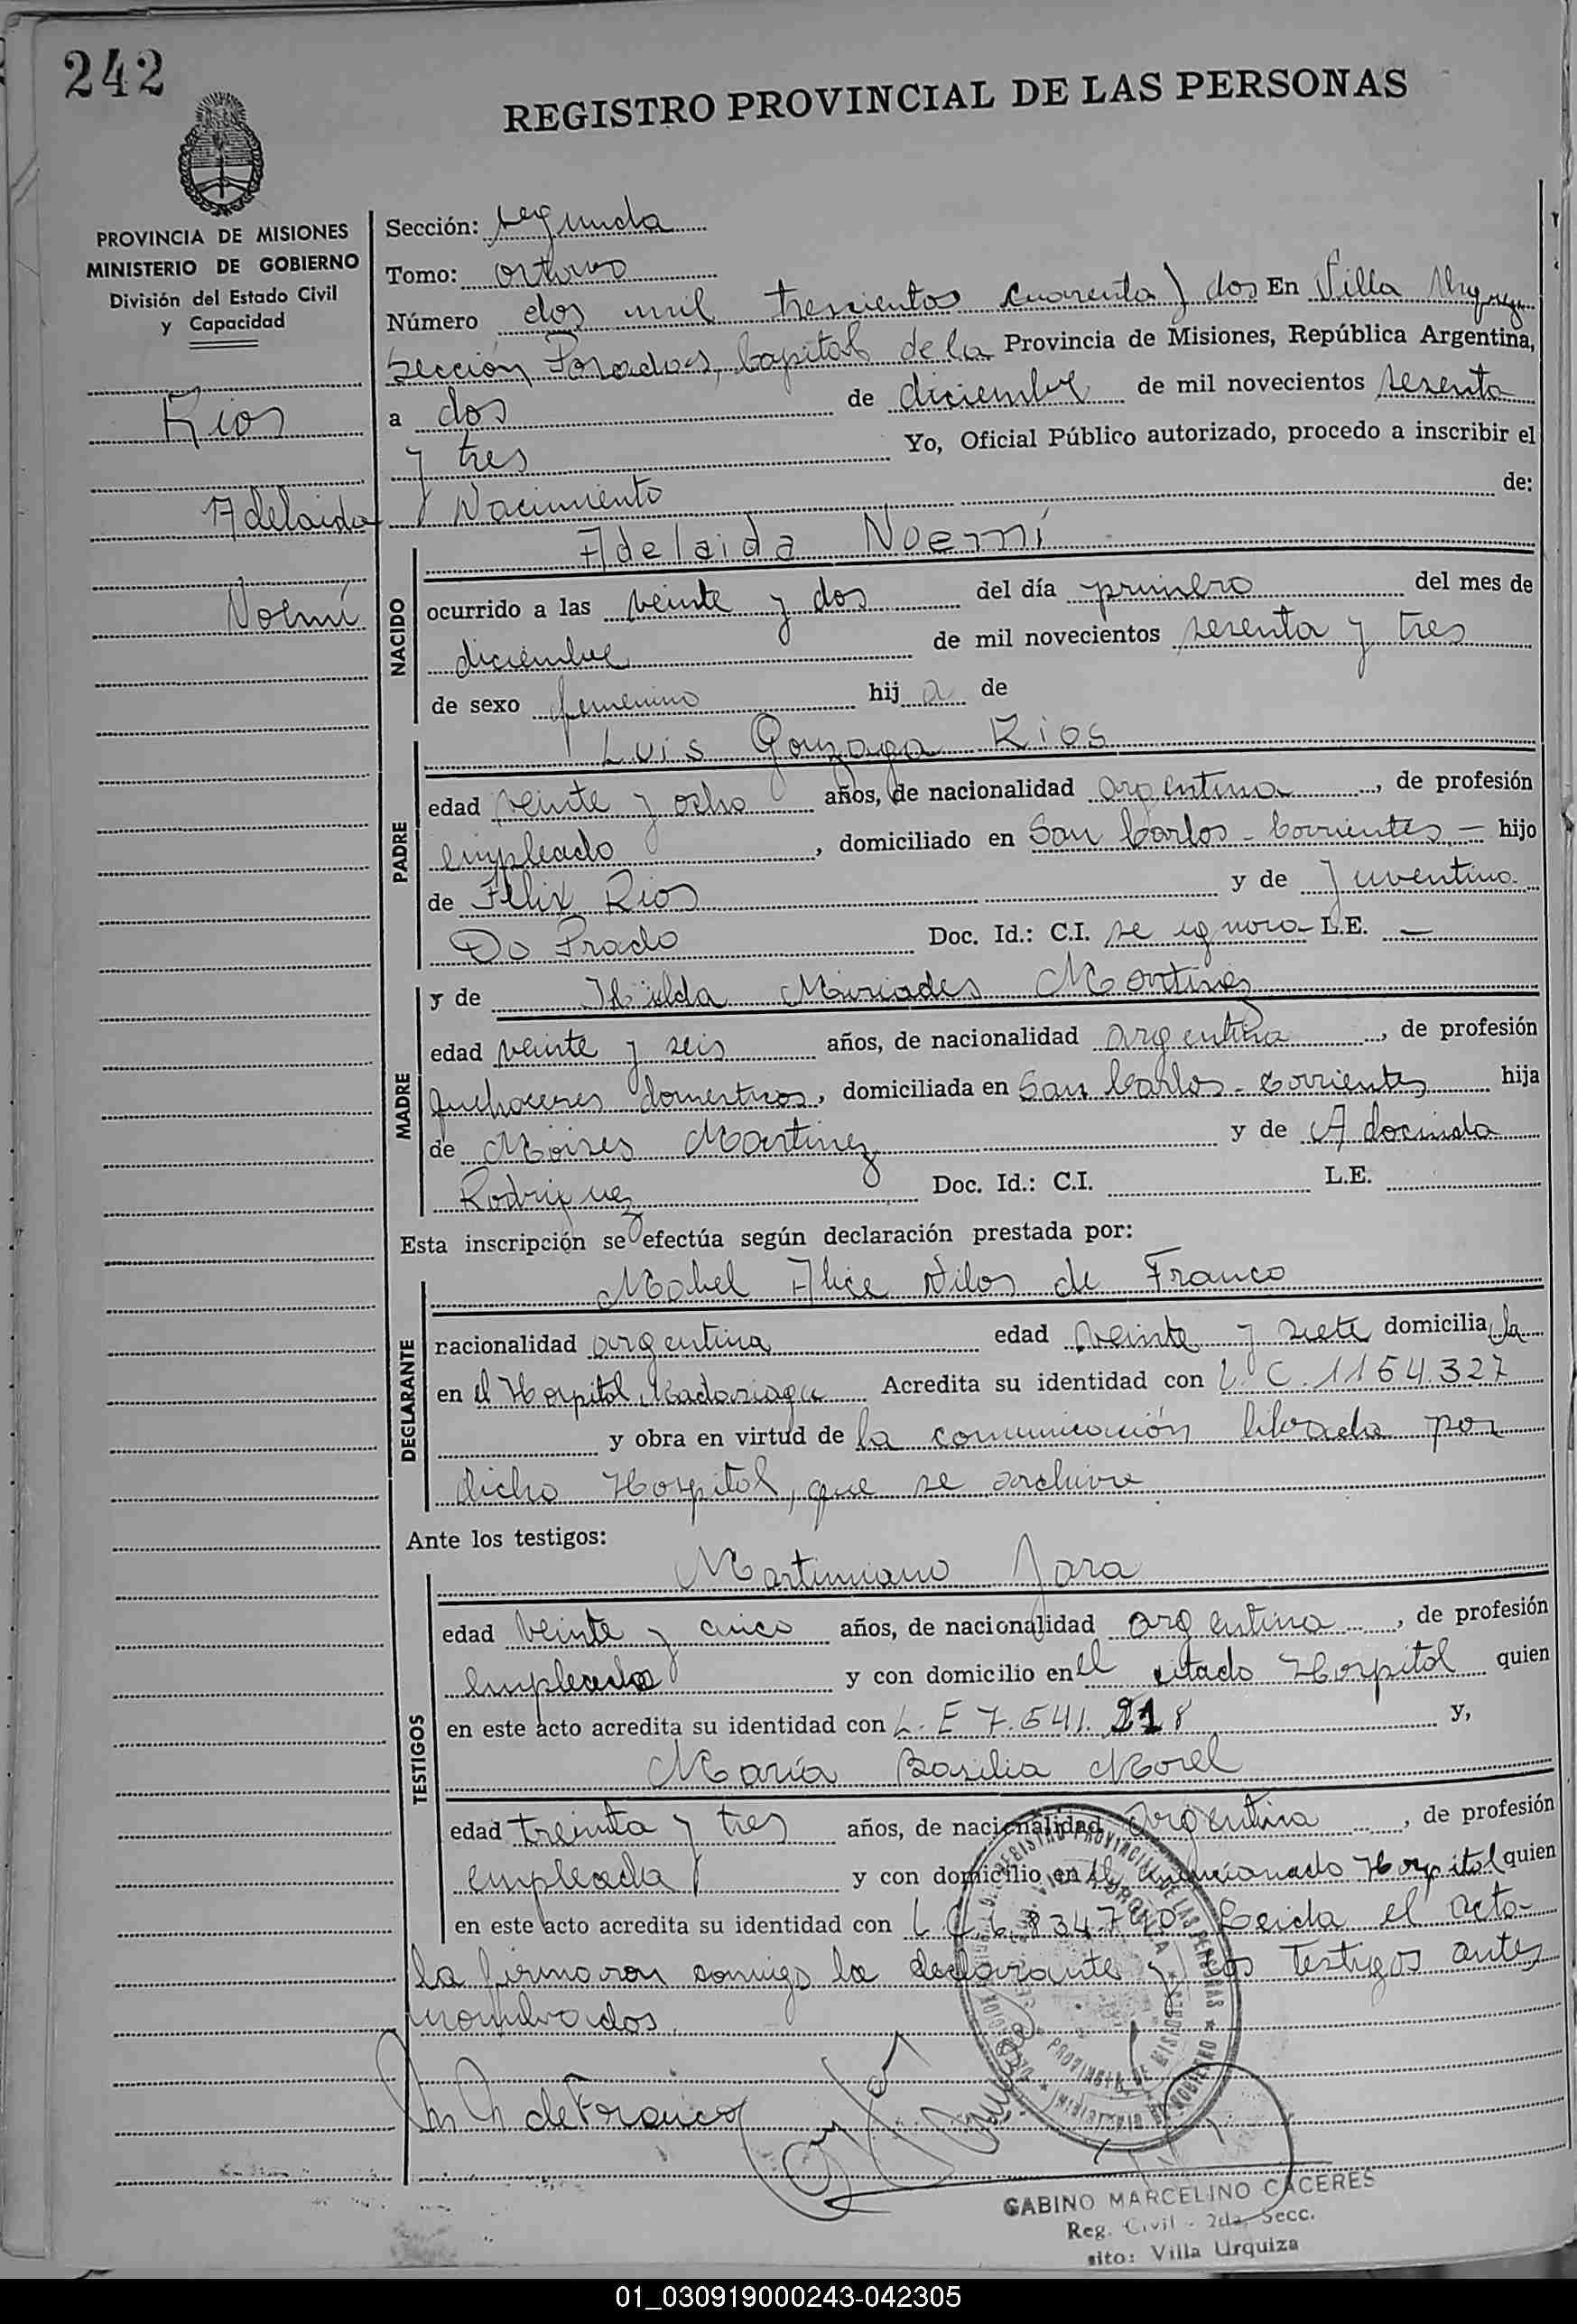 242
REGISTRO PROVINCIAL DE LAS PERSONAS
PROVINCIA DE MISIONES
MINISTERIO DE GOBIERNO
División del Estado Civil
y Capacidad
Rios
Adelaida
Noemí
Sección: segunda
Tomo: octavo
Número dos mil trescientos cuarenta y dos En Villa Urquiza
Sección Posadas, Capital de la Provincia de Misiones, República Argentina,
a dos de diciembre de mil novecientos sesenta
y tres Yo, Oficial Público autorizado, procedo a inscribir el
Nacimiento de:
NACIDO
Adelaida Noemí
ocurrido a las veinte y dos del día primero del mes de
diciembre de mil novecientos sesenta y tres
de sexo femenino hija de
PADRE
Luis Gonzaga Rios
edad veinte y ocho años, de nacionalidad argentina, de profesión
empleado, domiciliado en San Carlos - Corrientes - hijo
de Félix Rios y de Juventina
Do Prado Doc. Id.: C.I. se ignora L.E. —
MADRE
y de Hilda Miriades Martinez
edad veinte y seis años, de nacionalidad argentina, de profesión
quehaceres domesticos, domiciliada en San Carlos - Corrientes hija
de Moises Martinez y de Adocinda
Rodriguez Doc. Id.: C.I. L.E.
Esta inscripción se efectúa según declaración prestada por:
DECLARANTE
Mabel Alice de Franco
nacionalidad argentina edad veinte y siete domicilia la
en el Hospital Madariaga Acredita su identidad con L. C. 1154.327
y obra en virtud de la comunicación librada por
dicho Hospital, que se archiva
Ante los testigos:
TESTIGOS
Martiniano Jara
edad veinte y cinco años, de nacionalidad argentina, de profesión
empleado y con domicilio en el citado Hospital quien
en este acto acredita su identidad con L. E 7.541.218 y,
María Basilia Morel
edad treinta y tres años, de nacionalidad argentina, de profesión
empleada y con domicilio en el mencionado Hospital quien
en este acto acredita su identidad con L C Leida el acta
la firmaron conmigo la declarante y los testigos antes
nombrados.
de Franco
REGISTRO PROVINCIAL DE LAS PERSONAS
PROVINCIA DE MISIONES
GABINO MARCELINO CACERES
Reg. Civil - 2da. Secc.
sito: Villa Urquiza
01_030919000243-042305